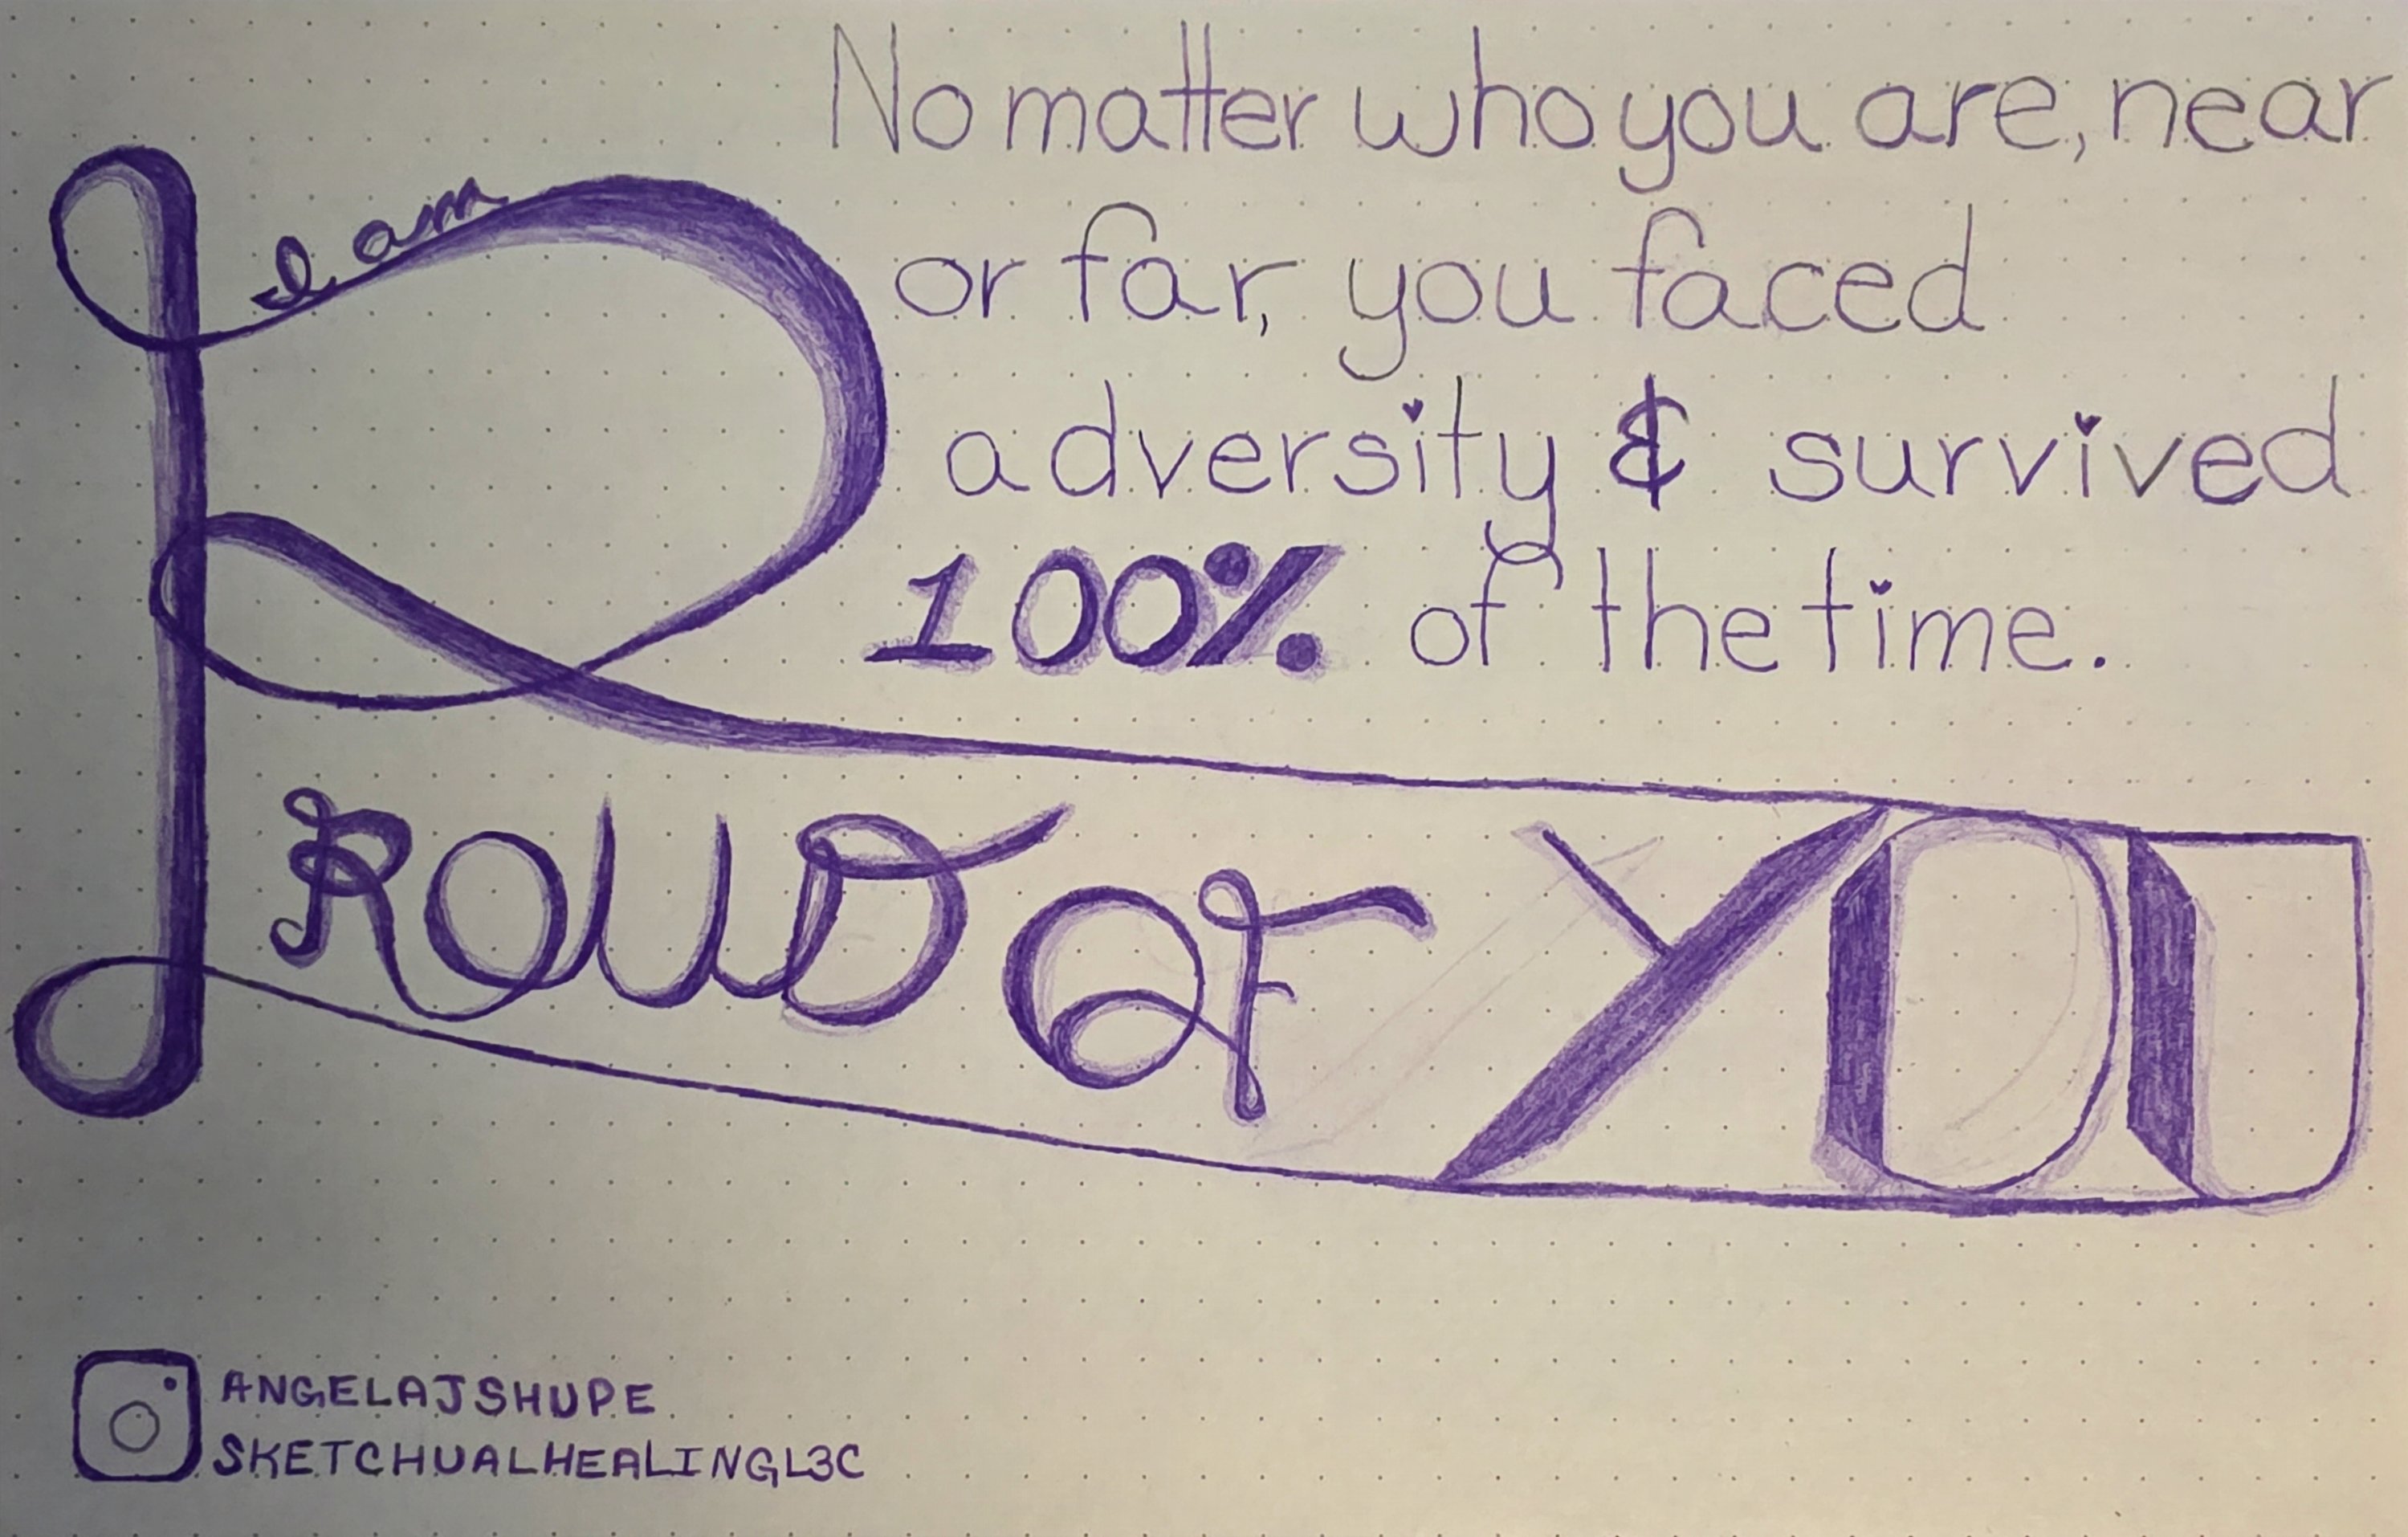 No matter who you are, near
or far, you faced
adversity & survived
100% of the time.
I am
PROUD OF YOU
ANGELAJSHUPE
SKETCHUALHEALINGL3C